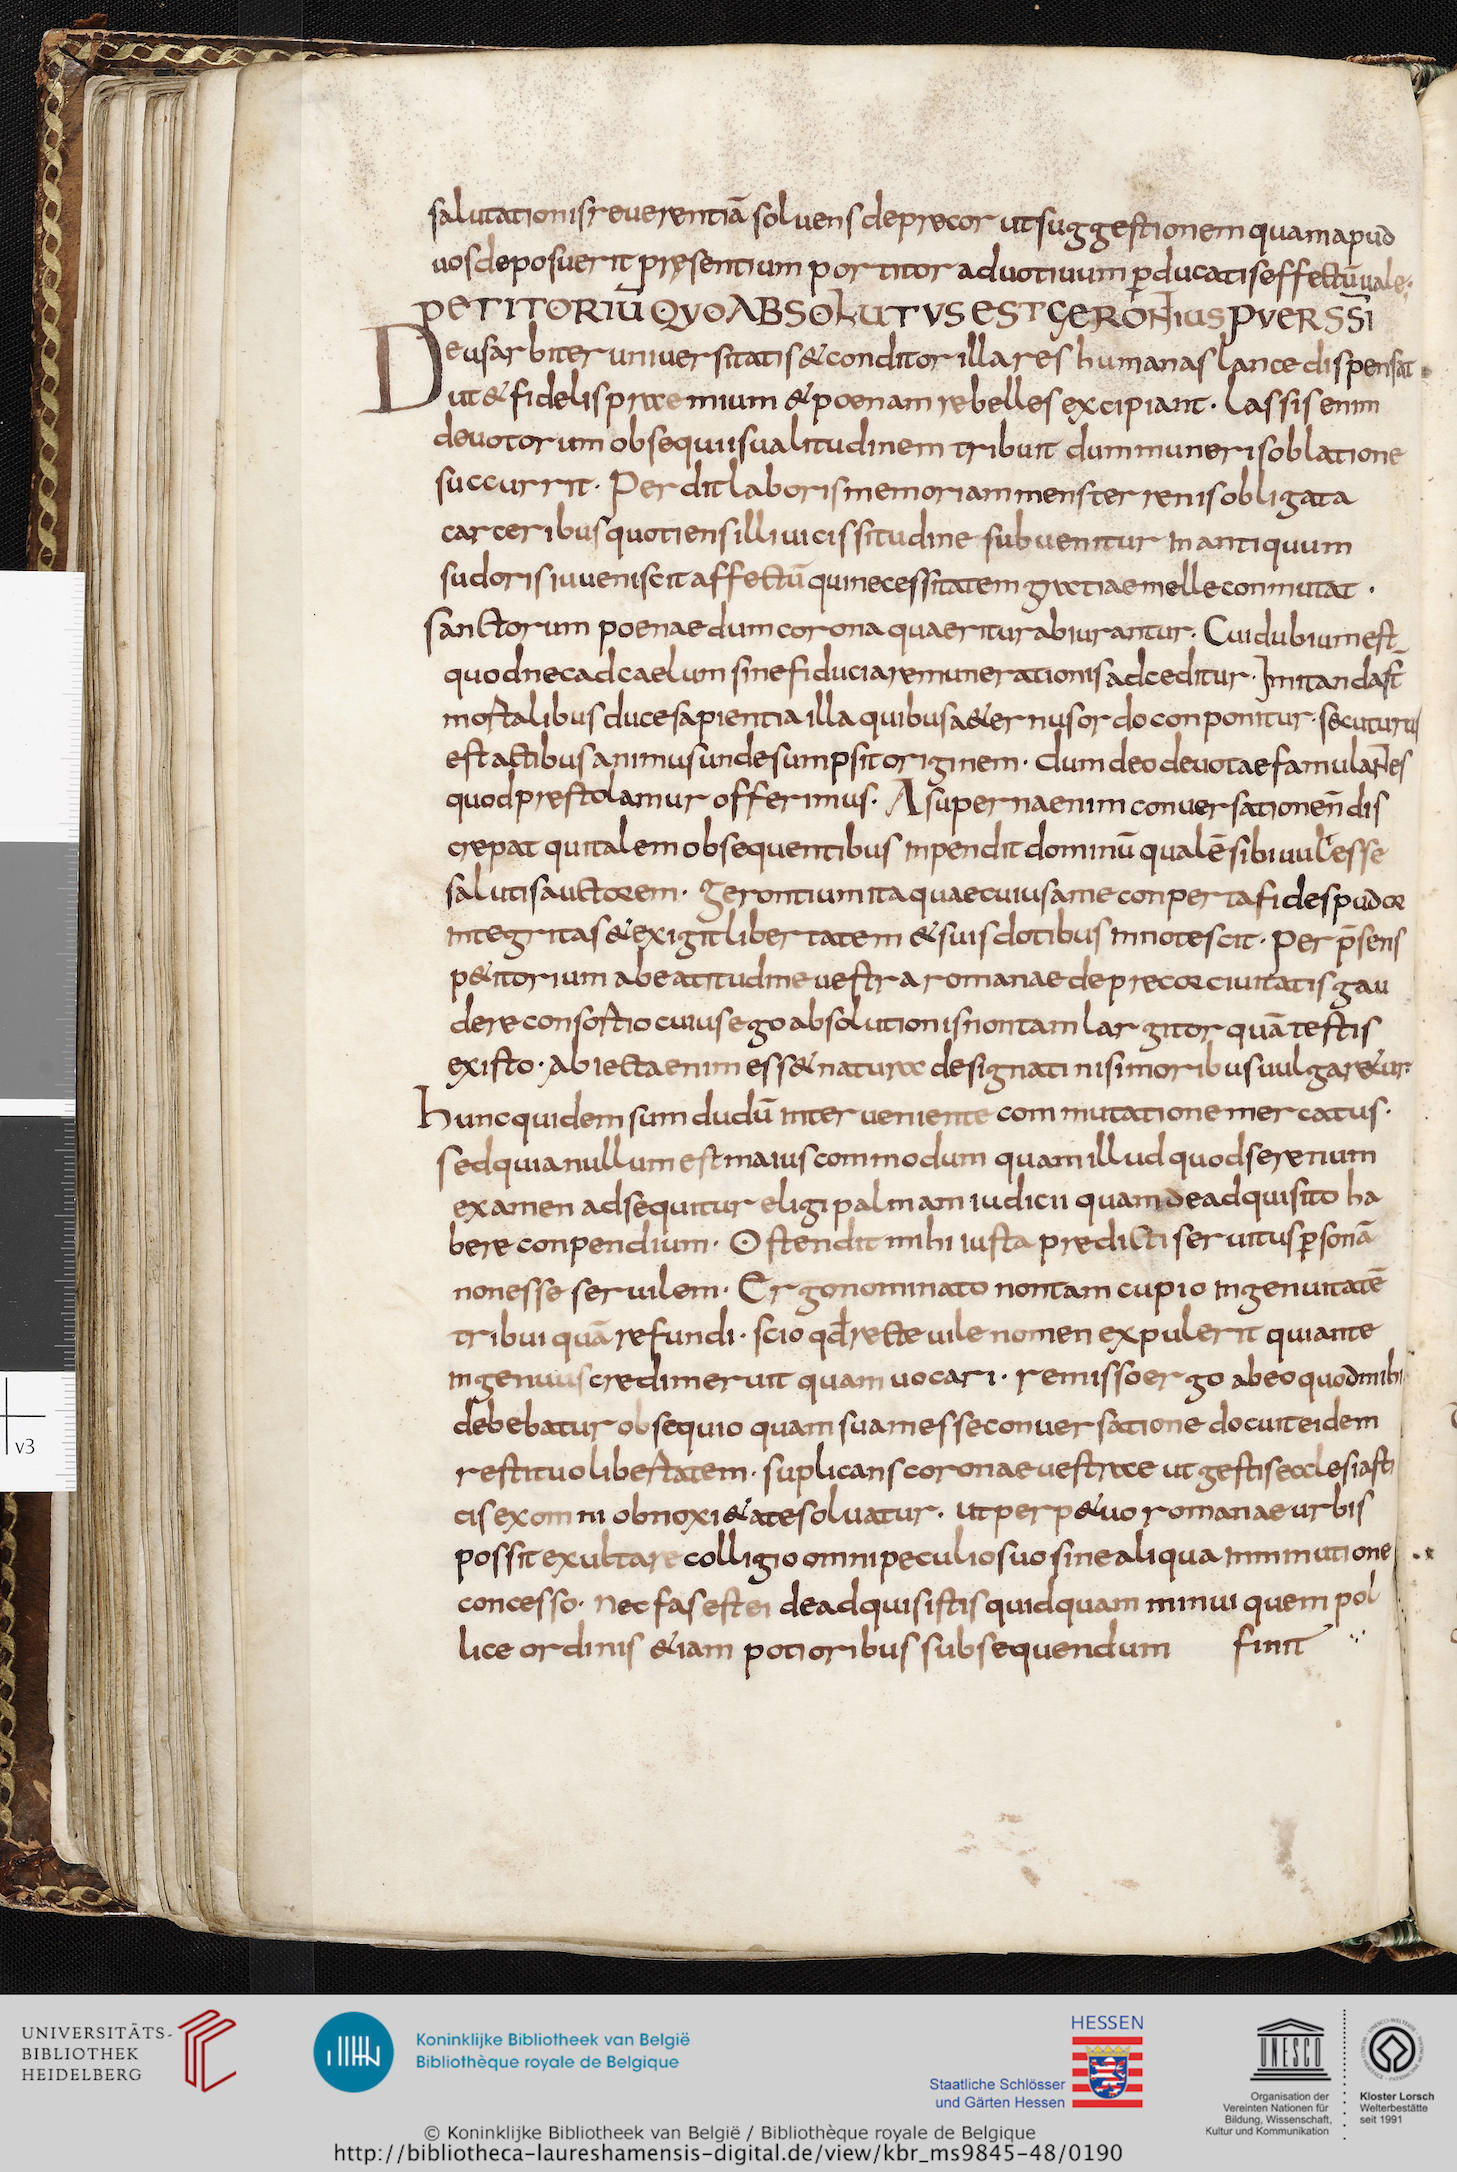 salutationis reuerentiā soluens deprecor ut suggestionem quam apud
uos deposuerit pręsentium portitor ad uotiuum ꝑducatis effectū uale;
PETITORIŪ QVO ABSOLUTVS EST GERONTIUS PVER S̄S̄I
Deus arbiter uniuersitatis & conditor illa res humanas lance dispensat
ut & fidelis praemium & poenam rebelles excipiant. Lassis enim
deuotorum obsequiis ualitudinem tribuit dum muneris oblatione
succurrit. Perdit laboris memoriam mens terrenis obligata
carceribus quotiens illi uicissitudine subuenitur in antiquum
sudoris iuueniscit affectū qui necessitatem gratiae melle conmutat.
sanctorum poenae dum corona quaeritur abiurantur. Cui dubium est
quod nec ad caelum sine fiducia remunerationis adceditur. Imitanda st
mortalibus duce sapientia illa quibus a&ernus ordo conponitur. secuturus
est actibus animus unde sumpsit originem. dum deo deuotae famulantes
quod prestolamur offerimus. A superna enim conuersatione n̄ dis
crepat qui talem obsequentibus inpendit dominū qualē sibi uult esse
salutis auctorem. Gerontium itaquae cuius a me conperta fides pudor
integritas & exigit libertatem & suis dotibus innotescit. Per p̄sens
p&itorium a beatitudine uestra romanae deprecor ciuitatis gau
dere consortio cuius ego absolutionis non tam largitor quā testis
existo. Abiecta enim ess& natura designati nisi moribus uulgar&ur.
hunc quidem sum dudū interueniente commutatione mercatus.
sed quia nullum est maius commodum quam illud quod serenum
examen adsequitur eligi palmam iudicii quam de adquisito ha
bere conpendium. Ostendit mihi iusta predicti seruitus ꝑsonā
non esse seruilem. Ergo nominato non tam cupio ingenuitatē
tribui quā refundi. scio qd̄ recte uile nomen expulerit qui ante
ingenuus credi meruit quam uocari. remisso ergo ab eo quod mihi
debebatur obsequio quam suam esse conuersatione docuit eidem
restituo libertatem. suplicans coronae uestrae ut gestis ecclesiasti
cis ex omni obnoxi&ate soluatur. ut perp&uo romanae urbis
possit exultare colligio omni peculio suo sine aliqua inminutione
concesso. Nec fas est ei de adquisistis quidquam minui quem pol
lice ordinis &iam potioribus subsequendum finit
v3
UNIVERSITÄTS-
BIBLIOTHEK
HEIDELBERG
Koninklijke Bibliotheek van België
Bibliothèque royale de Belgique
HESSEN
Staatliche Schlösser
und Gärten Hessen
UNESCO
Organisation der
Vereinten Nationen für
Bildung, Wissenschaft,
Kultur und Kommunikation
Kloster Lorsch
Welterbestätte
seit 1991
© Koninklijke Bibliotheek van België / Bibliothèque royale de Belgique
http://bibliotheca-laureshamensis-digital.de/view/kbr_ms9845-48/0190